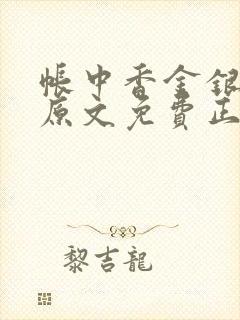 帳中香金銀
原文免費正
黎吉龍